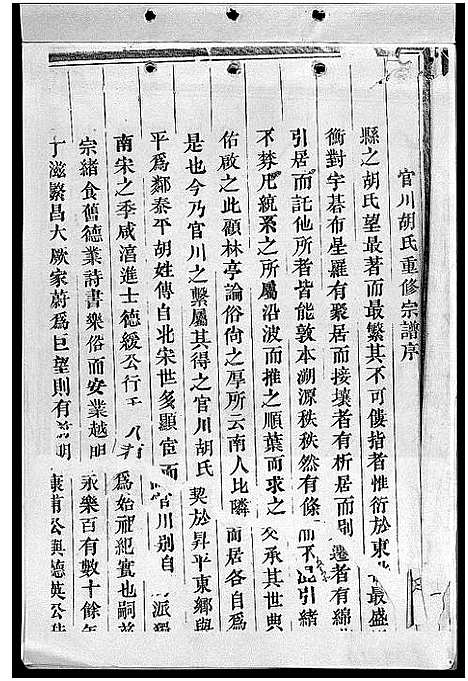 官川胡氏重修宗譜序
縣之胡氏望最著而最繁其不可僂指者惟衍於東北最盛
衡對宇碁布星羅有聚居而接壤者有析居而別遷者有綿
引居而託他所者皆能敦本溯源秩秩然有條而不紊引緒
不棼凡統系之所屬沿波而推之順葉而求之 承其世典
佑啟之此顧林亭論俗尙之厚所云南人比隣而居各自爲
是也今乃官川之繫屬其得之官川胡氏 契於昇平東鄉與
平爲鄰泰平胡姓傳自北宋世多顯宦而官川別自 派獨
南宋之季咸淳進士德緩公行 爲始祖紀實也嗣
宗緒食舊德業詩書樂俗而安業越明永樂百有數十餘年
丁滋繁昌大厥家蔚爲巨望則有 明康甫公與德英公